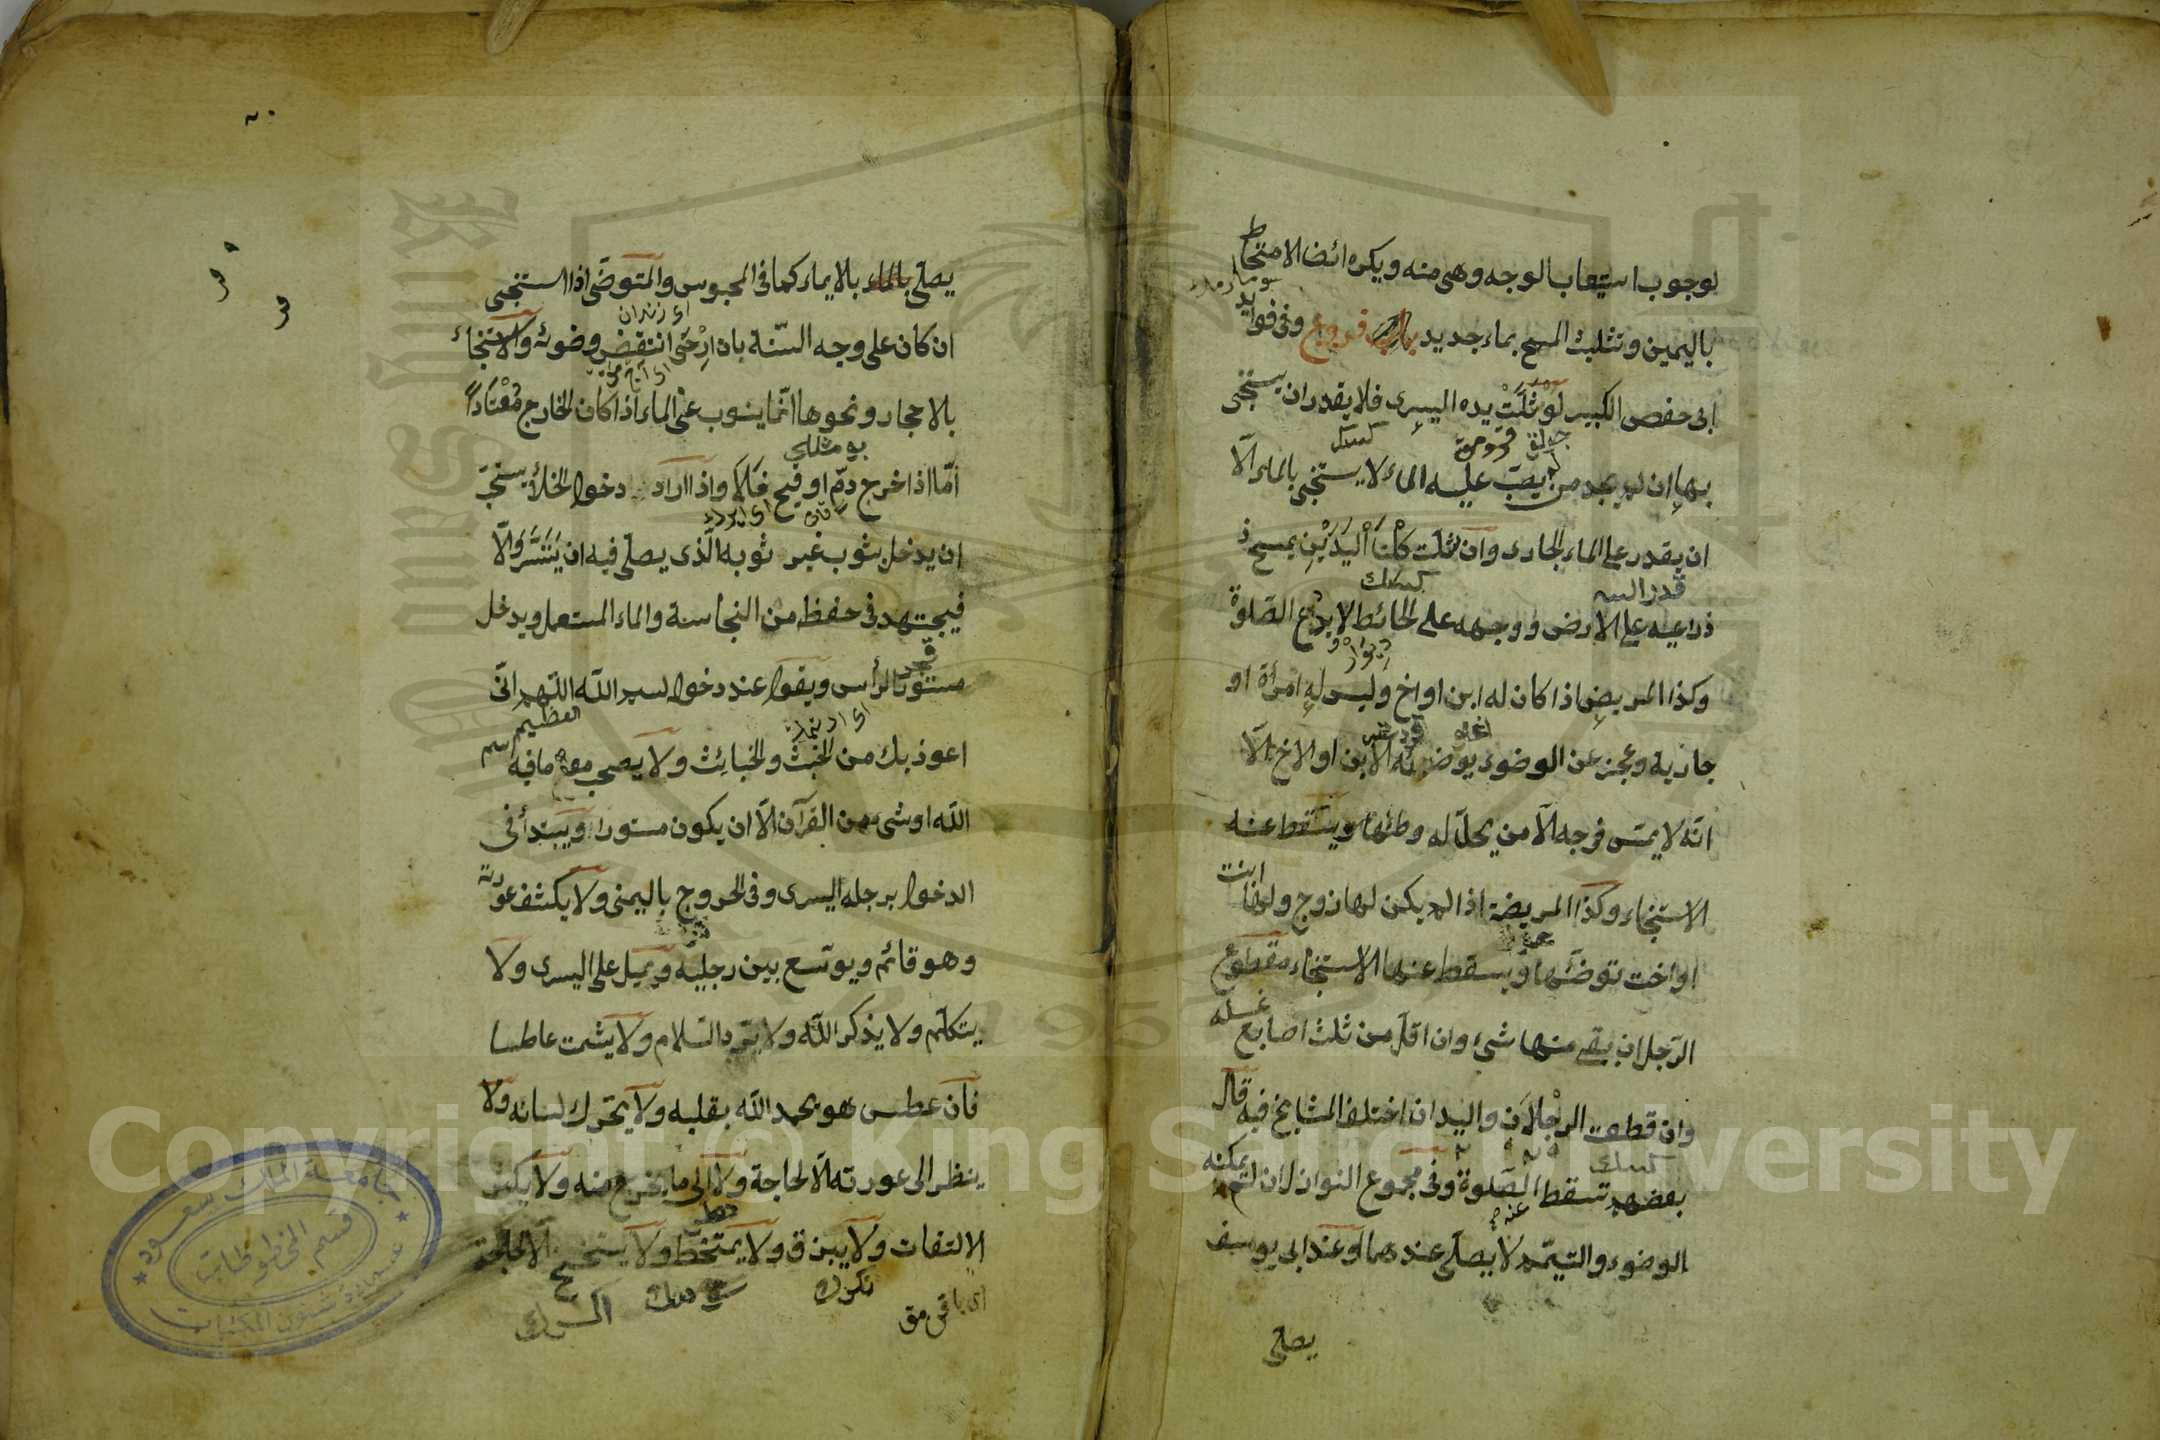 لوجوب استيعاب الوجه وهى منه ويكره ايضا الامتخاط
باليمين وتثليث المسح بماء جديد فروع وفى فوايد
ابى حفص الكبير لو شلّت يده اليسرى فلا يقدر ان يستنجى
بها ان لم يجد من يصبّ عليه الماء لا يستنجى بالماء الّا
ان يقدر على الماء الجارى وان شلت كلتا اليدين يمسح ذ
ذراعيه على الارض ووجهه على الحائط ولا يدع الصّلوة
وكذا المريض اذا كان له ابن او اخ وليس له امرأة او
جارية وعجز عن الوضوء يوضيه الابن او الاخ الّا
انّه لا يمسّ فرجه الّا من يحلّ له وطئها ويسقط عنه
الاستنجاء وكذا المريضة اذا لم يكن لها زوج ولها ابنت
او اخت توضّئها ويسقط عنها الاستنجاء مقطوع
الرّجل ان بقى منها شىء وان اقلّ من ثلث اصابع غسله
وان قطعت الرجلان واليدان اختلف المشايخ فيه قال
بعضهم تسقط الصّلوة وفى مجموع النوازل ان لم يمكنه
الوضوء والتيمّم لا يصلّى عندهما وعند ابى يوسف
يصلى
يصلى بالايماء كما فى المحبوس والمتوضّى اذا استنجى
ان كان على وجه السّنة بان ارخى انتقض وضوئه والاستنجاء
بالاحجار ونحوها انّما ينوب عن الماء اذا كان الخارج معتادا
امّا اذا خرج دمّ او قيح فلا واذا اراد دخول الخلأ يستحبّ
ان يدخل بثوب غير ثوبه الّذى يصلّى فيه ان يتيسّر والّا
فيجتهد فى حفظه من النجاسة والماء المستعمل ويدخل
مستور الرأس ويقول عند دخوله بسم الله اللّهم انّى
اعوذ بك من الخبث والخبائث ولا يصحب معه ما فيه اسم
الله او شىء من القرآن الّا ان يكون مستورا ويبتدأ فى
الدخول برجله اليسرى وفى الخروج باليمنى ولا يكشف عورته
وهو قائم ويوسّع بين رجليه ويميل على اليسرى ولا
يتكلّم ولا يذكر الله ولا يردّ السّلام ولا يشمت عاطسا
فان عطس هو يحمد الله بقلبه ولا يحرّك لسانه ولا
ينظر الى عورته الّا لحاجة ولا الى ما يخرج منه ولا يكثر
الالتفات ولا يبزق ولا يمتخط ولا يتنحنح الّا لحاجة
جامعة الملك سعود
قسم المخطوطات
عمادة شئون المكتبات
King Saud University
Copyright © King Saud University